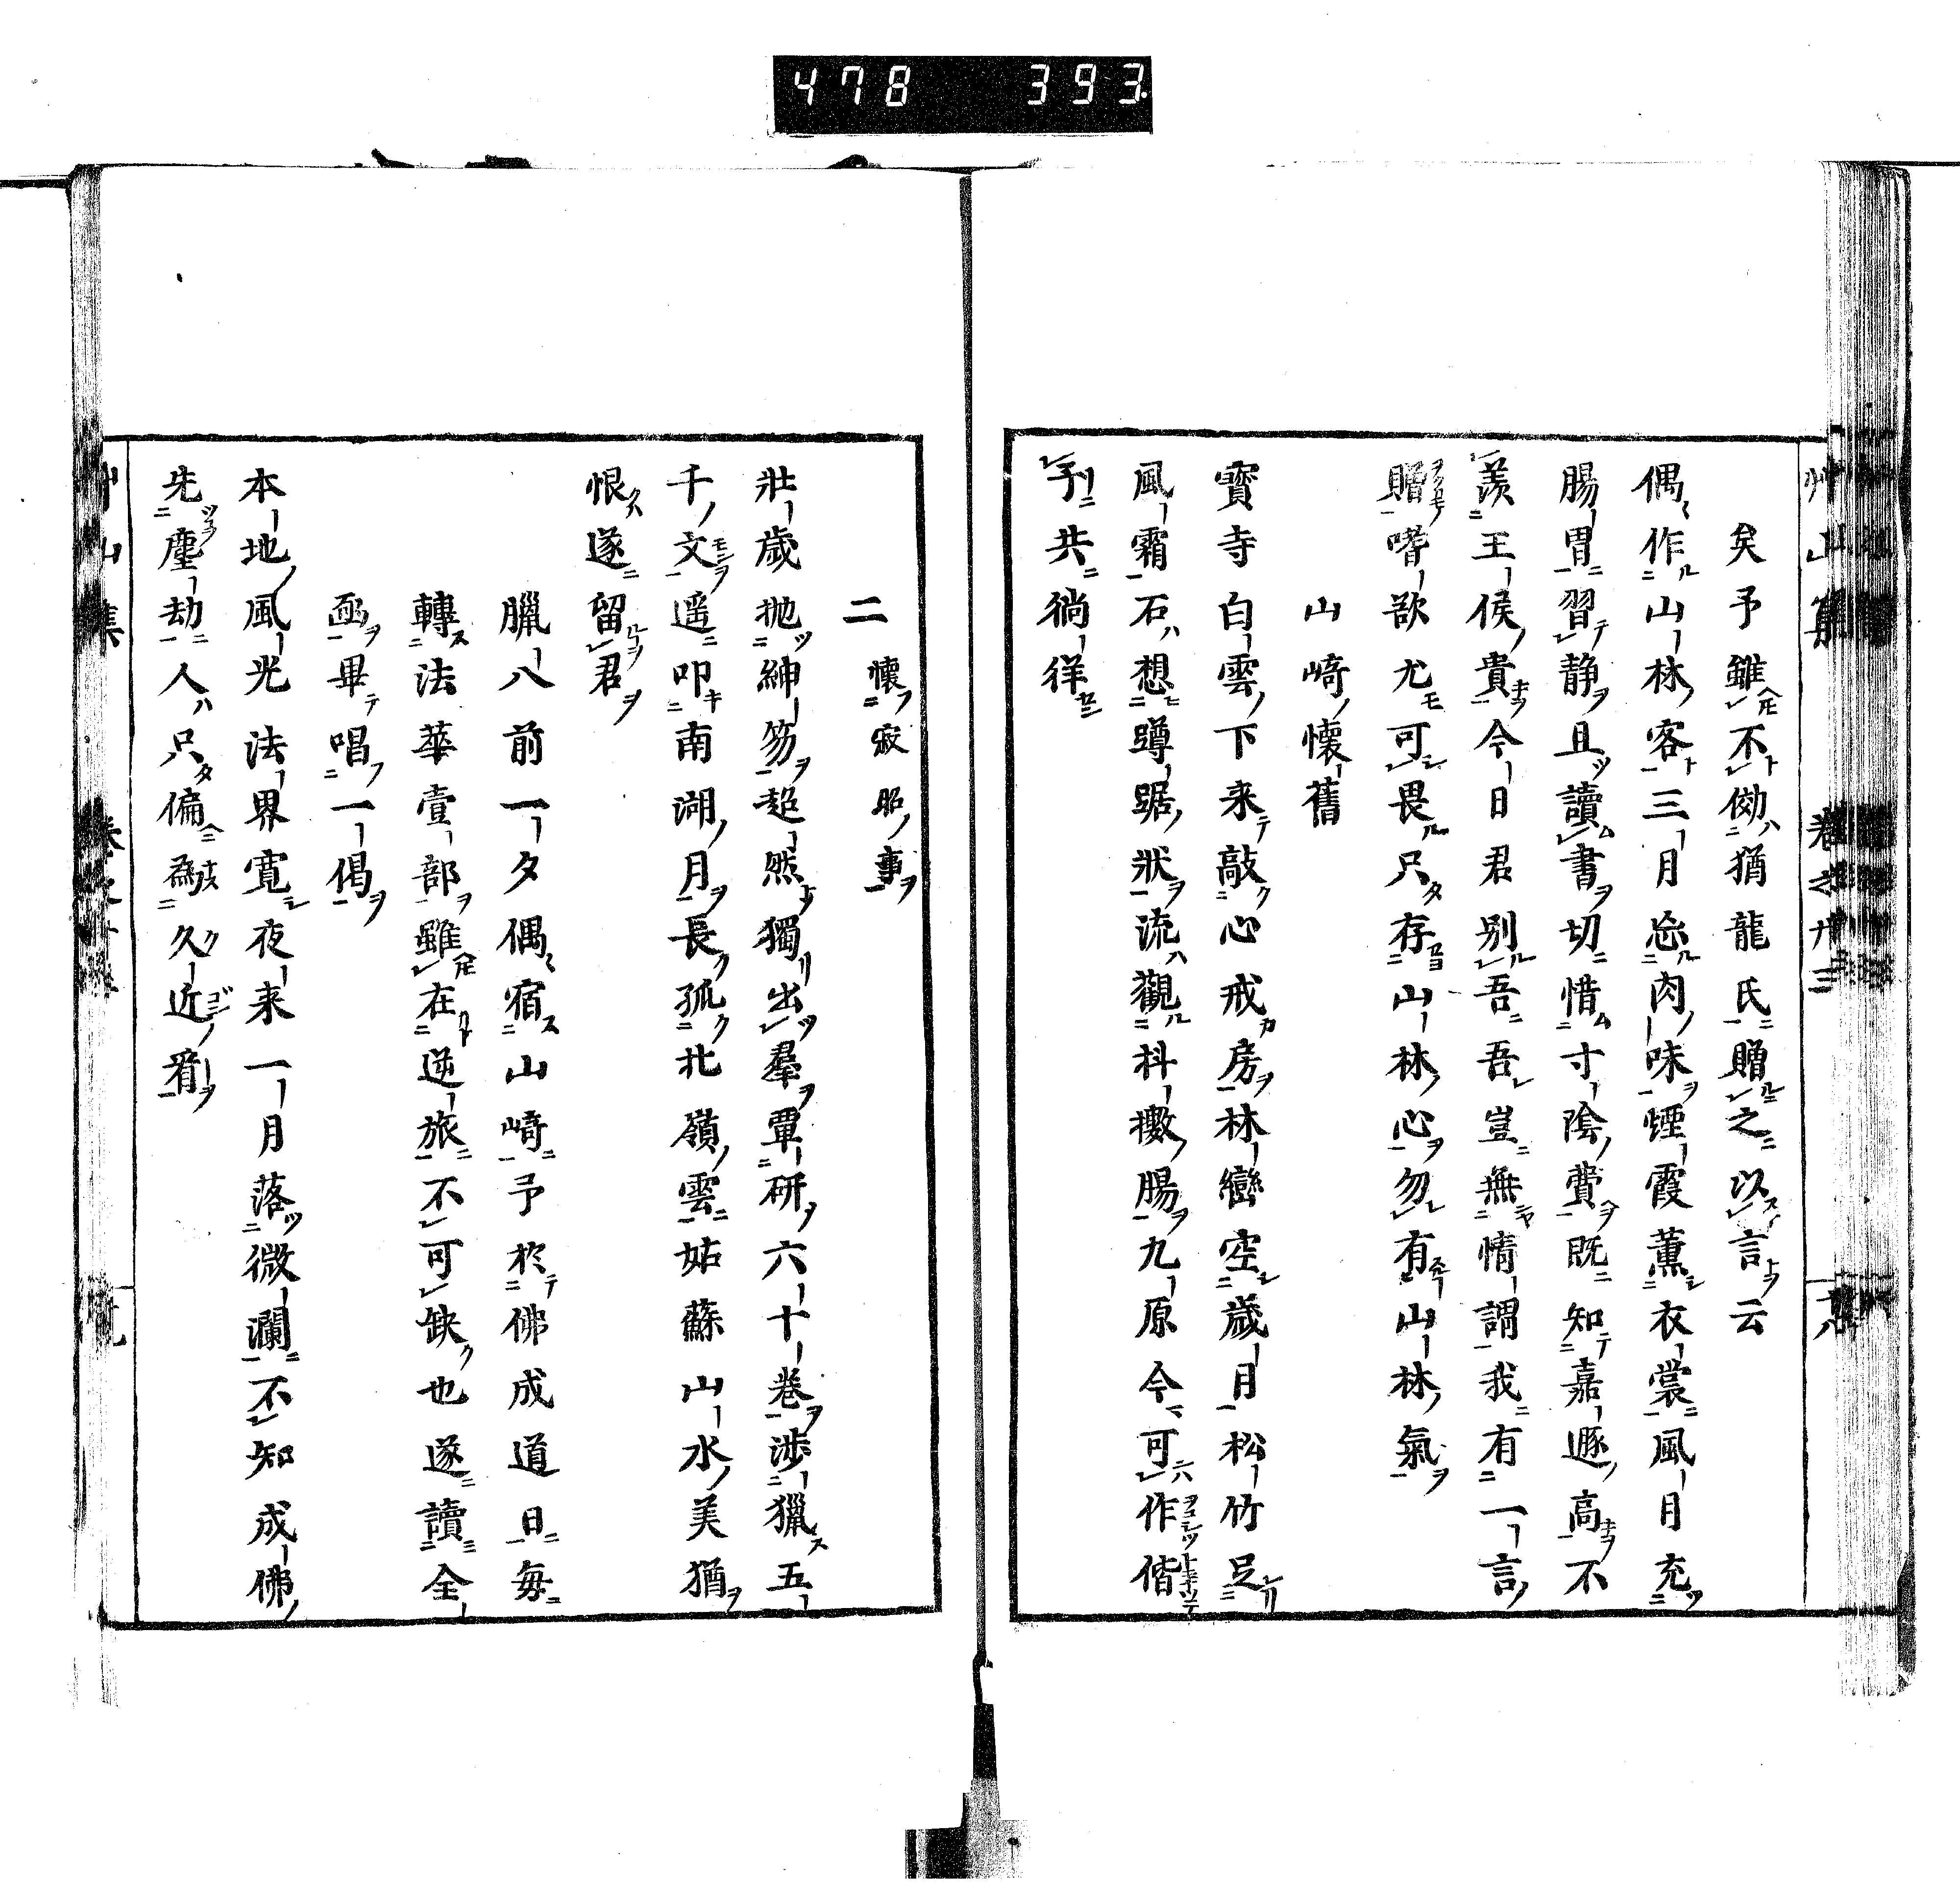 478 393
艸山集 卷之廿三
矣予雖不傚猶龍氏贈之以言云
偶作山林客三月忘肉味煙霞薰衣裳風月充
腸胃習静且讀書切惜寸陰費既知嘉遯高不
羨王侯貴今日君別吾吾豈無情謂我有一言
贈嗜欲尤可畏只存山林心勿有山林氣
山崎懷舊
寳寺白雲下来敲心戒房林巒空歲月松竹足
風霜石想蹲踞狀流觀抖擻腸九原今可作偕
予共徜徉
二 懷寂照事
壯歲抛紳笏超然獨出羣覃研六十卷涉獵五
千文遥叩南湖月長孤北嶺雲姑蘇山水美猶
恨遂留君
臘八前一夕偶宿山崎予於佛成道日每
轉法華壹部雖在逆旅不可缺也遂讀全
函畢唱一偈
本地風光法界寬夜来一月落微瀾不知成佛
先塵劫人只偏為久近看